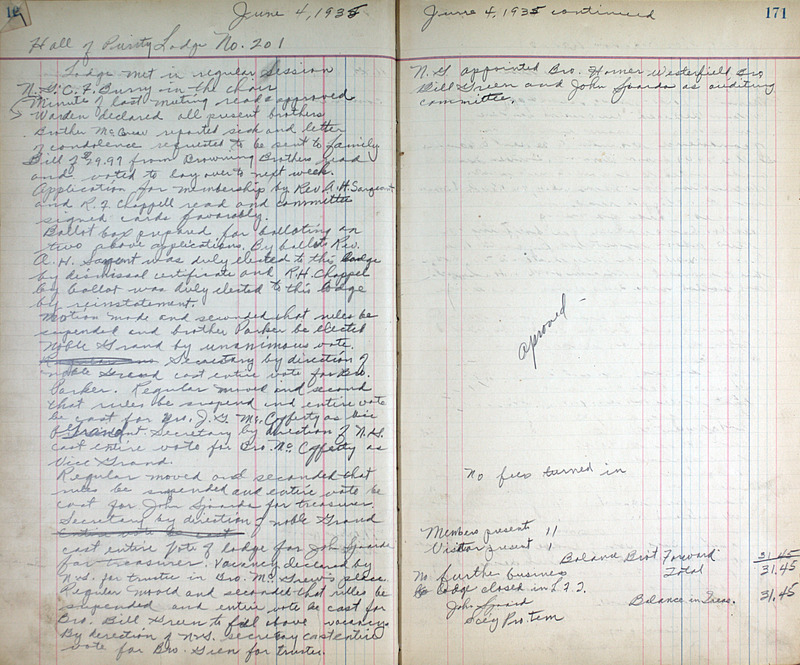 June 4, 1935
Hall of Purity Lodge No. 201
Lodge met in regular session
N.G. C.F. Burry in the chair
Minute of last meeting read & approved
Warden declared all present brothers
Brother McGrew reported sick and letter
of condolence requested to be sent to family
Bill of $39.99 from Browning Brothers read
and voted to lay over to next week.
Application for membership by Rev A.H. Sargeant
and R.F. Chappell read and committee
signed cards favorably.
Ballot box prepared for balloting on
two above applications. By ballot Rev.
A.H. Sargent was duly elected to this lodge
by dismissal certificate and R.H. Chappel
by ballot was duly elected to this lodge
by reinstatement.
Motion made and seconded that rules be
supended and brother Parker be elected
Noble Grand by unanimous vote.
Secretary by direction of
noble Grand cast entire vote for Bro.
Parker. Regular moved and second
that rules be suspend and entire vote
be cast for Bro. J.G. McCafferty as vice
Grand Secretary by direction of N.G.
cast entire vote for Bro. McCafferty as
Vice Grand.
Regular moved and seconded that
rules be supended and entire vote be
cast for John Spaards for treasurer.
Secretary by direction of noble Grand
entire vote be cast
cast entire vote of lodge for John Spaards
for treasurer. Vacancy declared by
N.G. for trustee in Bro. McGrew's place.
Regular moved and seconded that rules be
supended and entire vote be cast for
Bro. Bill Green to fill above vacancy.
By direction of N.G. secretary cast entire
vote for Bro. Green for trustee.
June 4, 1935 continued
171
N.G. appointed Bro. Homer Westerfield, Bro
Bill Green and John Spaards as auditing
committee.
aproved -
No fees turned in
Members present 11
Visitor present 1
Balance Brot Forward 31.45
No further business Total 31.45
lodge closed in L.F.T.
John Spaard Balance in Treas. 31.45
Secy Pro tem